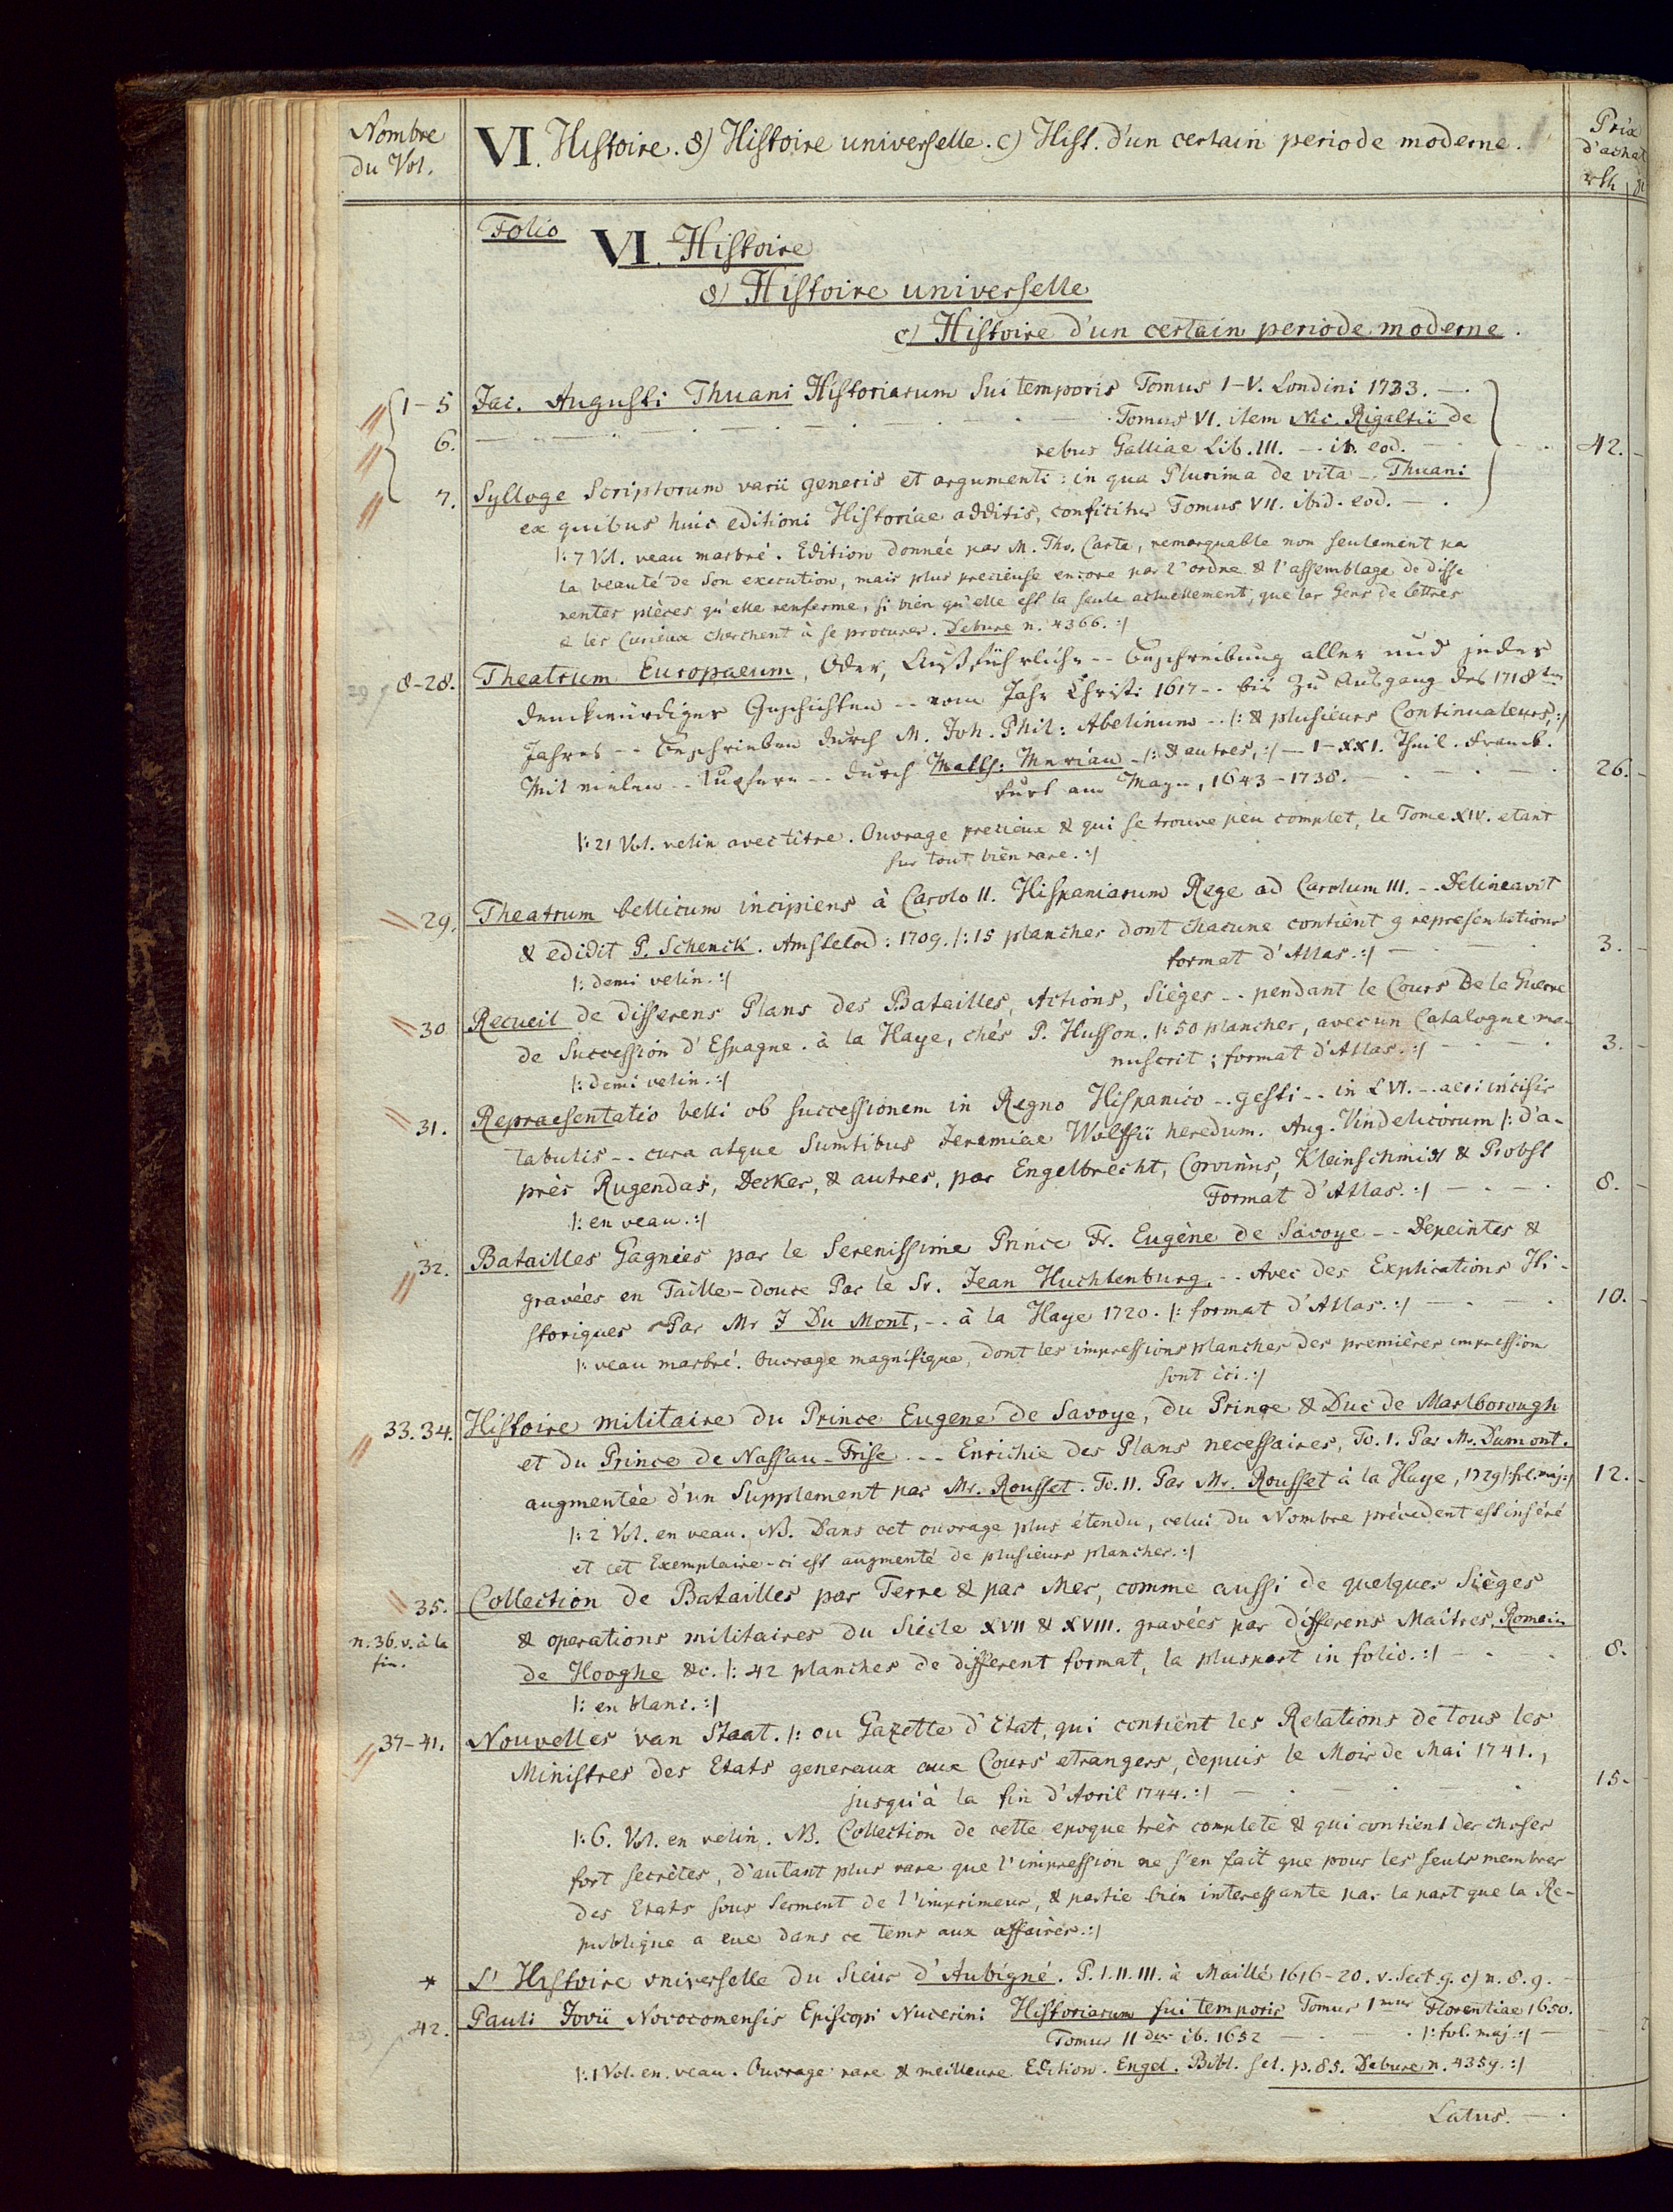 Nombre
du Vol.
VI. Histoire. 8) Histoire universelle. c) Hist. d'un certain periode moderne.
Prix
d'achat
rth
Folio
VI. Histoire
8) Histoire universelle
c) Histoire d'un certain periode moderne.
1-5 Jac. Augusti Thuani Historiarum Sui temporis Tomus I-V. Londini 1733. —.
6. — Tomus VI. item Nic. Rigaltii de
rebus Galliae Lib. III. — ib. eod. — 42.
7. Sylloge Scriptorum varii generis et argumenti: in qua Plurima de vita -. Thuani
ex quibus huic editioni Historiae additis, conficitur Tomus VII. ibid. eod. — .
|: 7 Vol. veau marbré. Edition donnée par M. Tho. Carte, remarquable non seulement pa
la beauté de son execution, mais plus precieuse encore par l'ordre & l'assemblage de diffe
rentes pièces qu'elle renferme, si bien qu'elle est la seule actuellement, que les Gens de lettres
& les Curieux cherchent à se procurer. Debure n. 4366. :|
8-28. Theatrum Europaeum, Oder, Außführliche -- Beschreibung aller und jeder
denckwürdiger Geschichten -- vom Jahr Christi 1617 -. bis zu Ausgang des 1718ten
Jahres -- beschrieben durch M. Joh. Phil: Abelinum -. |: & plusieurs Continuateurs, :|
Mit vielen -. Kupfern -- durch Matth: Merian -|: & autres, :| — I-XXI. Theil. Franck.
furt am Mayn, 1643-1738. — 26.
|: 21 Vol. velin avec titre. Ouvrage precieux & qui se trouve peu complet, le Tome XIV. etant
sur tout bien rare. :|
29. Theatrum bellicum incipiens à Carolo II. Hispaniarum Rege ad Carolum III. -. Delineavit
& edidit P. Schenck. Amstelod: 1709. |: 15 planches dont chacune contient 9 representations
format d'Atlas. :| — 3.
|: demi velin. :|
30 Recueil de differens Plans des Batailles, Actions, Sièges -. pendant le Cours De la Guerre
de Succession d'Espagne. à la Haye, chés P. Husson. |: 50 planches, avec un Catalogue ma-
nuscrit; format d'Atlas. :| — 3.
|: demi velin. :|
31. Repraesentatio belli ob successionem in Regno Hispanico -. gesti -. in LVI. -. aeri incisis
tabulis -. cura atque Sumtibus Jeremiae Wolffii heredum. Aug. Vindelicorum |: d'a-
près Rugendas, Decker, & autres, par Engelbrecht, Corvinus, Kleinschmidt & Probst
Format d'Atlas. :| — . — . 8.
|: en veau. :|
32. Batailles Gagnées par le Serenissime Prince Fr. Eugène de Savoye -- Depeintes &
gravées en Taille-douce Par le Sr. Jean Huchtenburg, -. Avec des Explications Hi-
storiques Par Mr J Du Mont, -. à la Haye 1720. |: format d'Atlas. :| — . — . 10.
|: veau marbré. Ouvrage magnifique, dont les impressions planches des premières impression
sont ici. :|
33.34. Histoire militaire du Prince Eugene de Savoye, du Prince & Duc de Marlborough
et du Prince de Nassau-Frise --- Enrichie des Plans necessaires, To. I. Par Mr. Dumont.
augmentée d'un Supplement par Mr. Rousset. To. II. Par Mr. Rousset à la Haye, 1729 |: fol. maj :| 12.
|: 2 Vol. en veau. NB. Dans cet ouvrage plus étendu, celui du Nombre précedent est inséré
et cet Exemplaire-ci est augmenté de plusieurs planches. :|
35. Collection de Batailles par Terre & par Mer, comme aussi de quelques Sièges
n. 36. v. à la
fin.
& operations militaires du Siécle XVII & XVIII. gravées par differens Maitres, Romain
de Hooghe &c. |: 42 planches de different format, la pluspart in folio. :| — . 8.
|: en blanc. :|
37-41. Nouvelles van Staat. |: ou Gazette d'Etat, qui contient les Relations de tous les
Ministres des Etats generaux aux Cours etrangers, depuis le Mois de Mai 1741.,
jusqu'à la fin d'Avril 1744. :| — 15.
|: 6. Vol. en velin. NB. Collection de cette epoque très complete & qui contient des choses
fort secrètes, d'autant plus rare que l'impression ne s'en fait que pour les seuls membres
des Etats sous Serment de l'imprimeur, & partie bien interessante par la part que la Re-
publique a eue dans ce tems aux affaires. :|
* L'Histoire universelle du Sieur d'Aubigné. P. I. II. III. à Maillé 1616-20. v. Sect. 9. c) n. 8. 9. —
42. Pauli Jovii Novocomensis Episcopi Nucerini Historiarum sui temporis Tomus Imus Florentiae 1650.
Tomus IIdus ib. 1652 — . — . |: fol. maj. :| —
|: 1 Vol. en veau. Ouvrage rare & meilleure Edition. Engel. Bibl. sel. p. 85. Debure n. 4359. :|
Latus. — .